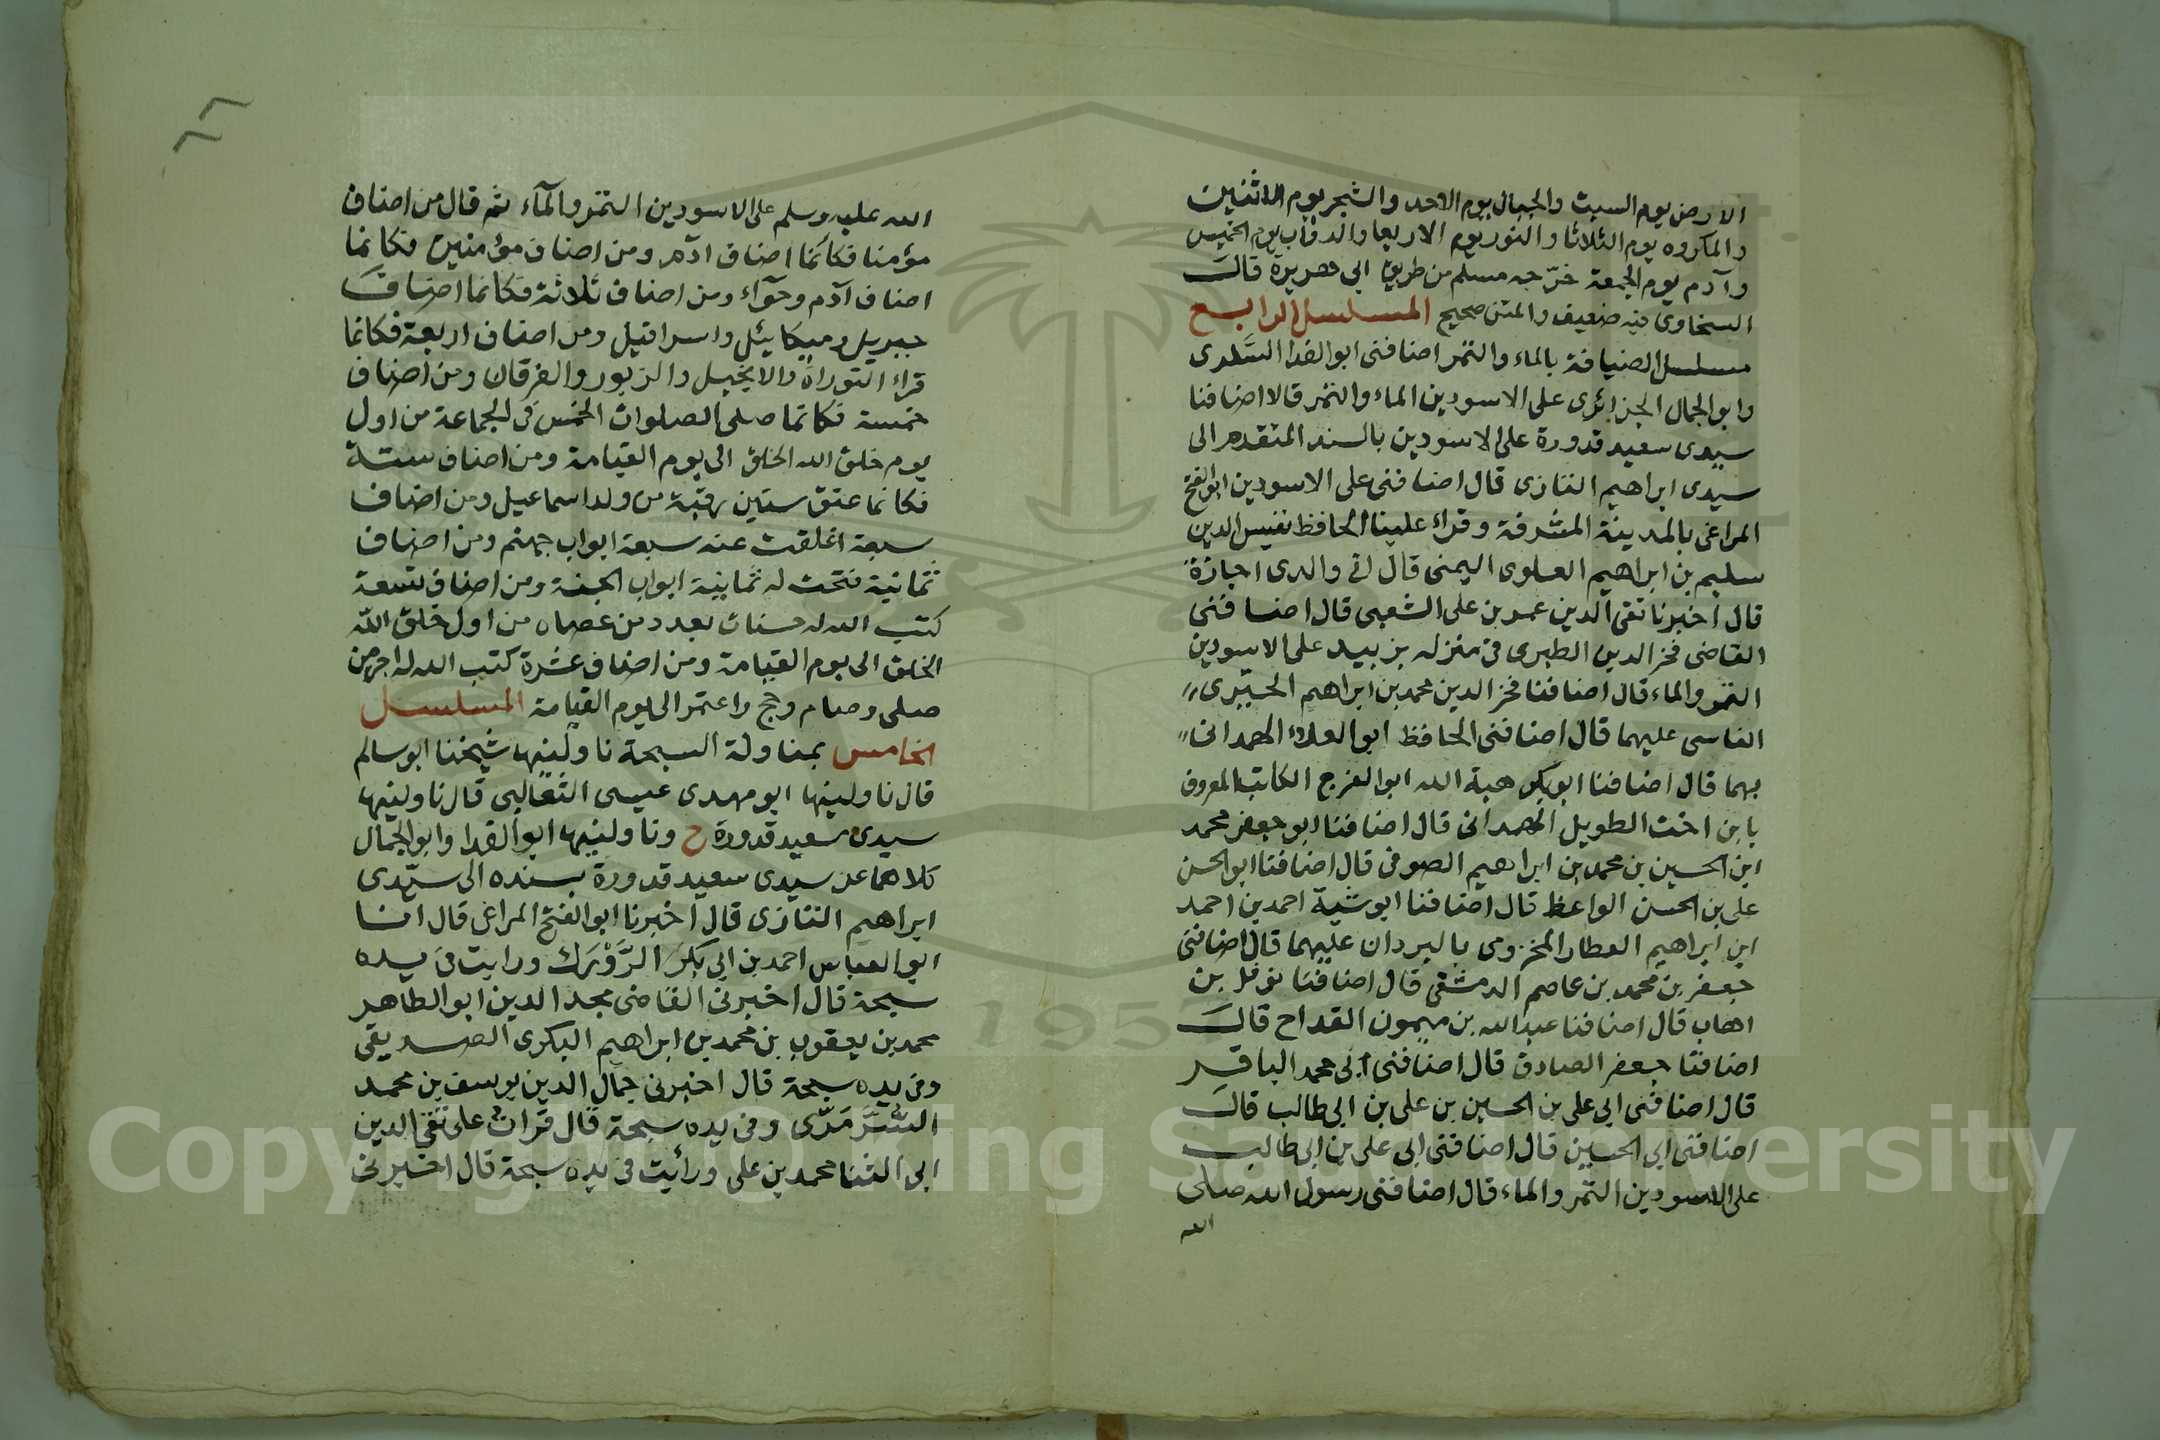 الارض يوم السبت والجبال يوم الاحد والشجر يوم الاثنين
والمكروه يوم الثلاثا والنور يوم الاربعا والدواب يوم الخميس
وآدم يوم الجمعة خرّجه مسلم من طريق ابي هريرة قال
السخاوى فيه ضعيف والمتن صحيح المسلسل الرابع
مسلسل الضيافة بالماء والتمر اضافنى ابو الفدا السَّلدى
وابو الجمال الجزايرى على الاسودين الماء والتمر قالا اضافنا
سيدى سعيد قدورة على الاسودين بالسند المتقدم الى
سيدى ابراهيم التازى قال اضافنى على الاسودين ابو الفتح
المراغى بالمدينة المشرفة وقراء علينا الحافظ نفيس الدين
سليم بن ابراهيم العلوى اليمنى قال انى والدى اجازة
قال اخبرنا تقى الدين عمر بن على الشعبى قال اضافنى
القاضى فخر الدين الطبرى فى منزله بزبيد على الاسودين
التمر والماء قال اضافنا فخر الدين محمد بن ابراهيم الخبرى
الفاسى عليهما قال اضافنى الحافظ ابو العلاء الهمدانى
بهما قال اضافنا ابو بكر هبة الله ابو الفرج الكاتب المعروف
بابن اخت الطويل الهمدانى قال اضافنا ابو جعفر محمد
ابن الحسين بن محمد بن ابراهيم الصوفى قال اضافنا ابو الحسن
على بن الحسن الواعظ قال اضافنا ابو شيبة احمد بن احمد
ابن ابراهيم العطار المخزومى بالبردان عليهما قال اضافنى
جعفر بن محمد بن عاصم الدمشقى قال اضافنا نوفل بن
اهاب قال اضافنا عبد الله بن ميمون القداح قال
اضافنا جعفر الصادق قال اضافنى ابى محمد الباقر
قال اضافنى ابى على بن الحسين بن على بن ابى طالب قال
اضافنى ابى الحسين قال اضافنى ابى على بن ابى طالب
على الاسودين التمر والماء قال اضافنى رسول الله صلى
الله
الله عليه وسلم على الاسودين التمر والمآء ثم قال من اضاف
مؤمنا فكانما اضاف ادم ومن اضاف مؤمنين فكانما
اضاف آدم وحوآء ومن اضاف ثلاثة فكانما اضاف
جبريل وميكائيل واسرافيل ومن اضاف اربعة فكانما
قراء التوراة والانجيل والزبور والفرقان ومن اضاف
خمسة فكانما صلى الصلوات الخمس فى الجماعة من اول
يوم خلق الله الخلق الى يوم القيامة ومن اضاف ستة
فكانما عتق ستين رقبة من ولد اسماعيل ومن اضاف
سبعة اغلقت عنه سبعة ابواب جهنم ومن اضاف
ثمانية فتحت له ثمانية ابواب الجنة ومن اضاف تسعة
كتب الله له حسنات بعدد من عصاه من اول خلق الله
الخلق الى يوم القيامة ومن اضاف عشرة كتب الله له اجر من
صلى وصام وحج واعتمر الى يوم القيامة المسلسل
الخامس بمناولة السبحة ناولنيها شيخنا ابو سالم
قال ناولنيها ابو مهدى عيسى الثعالبى قال ناولنيها
سيدى سعيد قدورة ح وناولنيها ابو الفدا وابو الجمال
كلاهما عن سيدى سعيد قدورة بسنده الى سيّدى
ابراهيم التنازى قال اخبرنا ابو الفتح المراغى قال انا
ابو العباس احمد بن ابى بكر الرَّوْرَك ورايت فى يده
سبحة قال اخبرنى القاضى مجد الدين ابو الطاهر
محمد بن يعقوب بن محمد بن ابراهيم البكرى الصديقى
وفى يده سبحة قال اخبرنى جمال الدين يوسف بن محمد
السُّرَّمَرّى وفى يده سبحة قال قرات على تقى الدين
ابى الثنا محمد بن على ورأيت فى يده سبحة قال اخبرنى
Copyright © King Saud University
1957